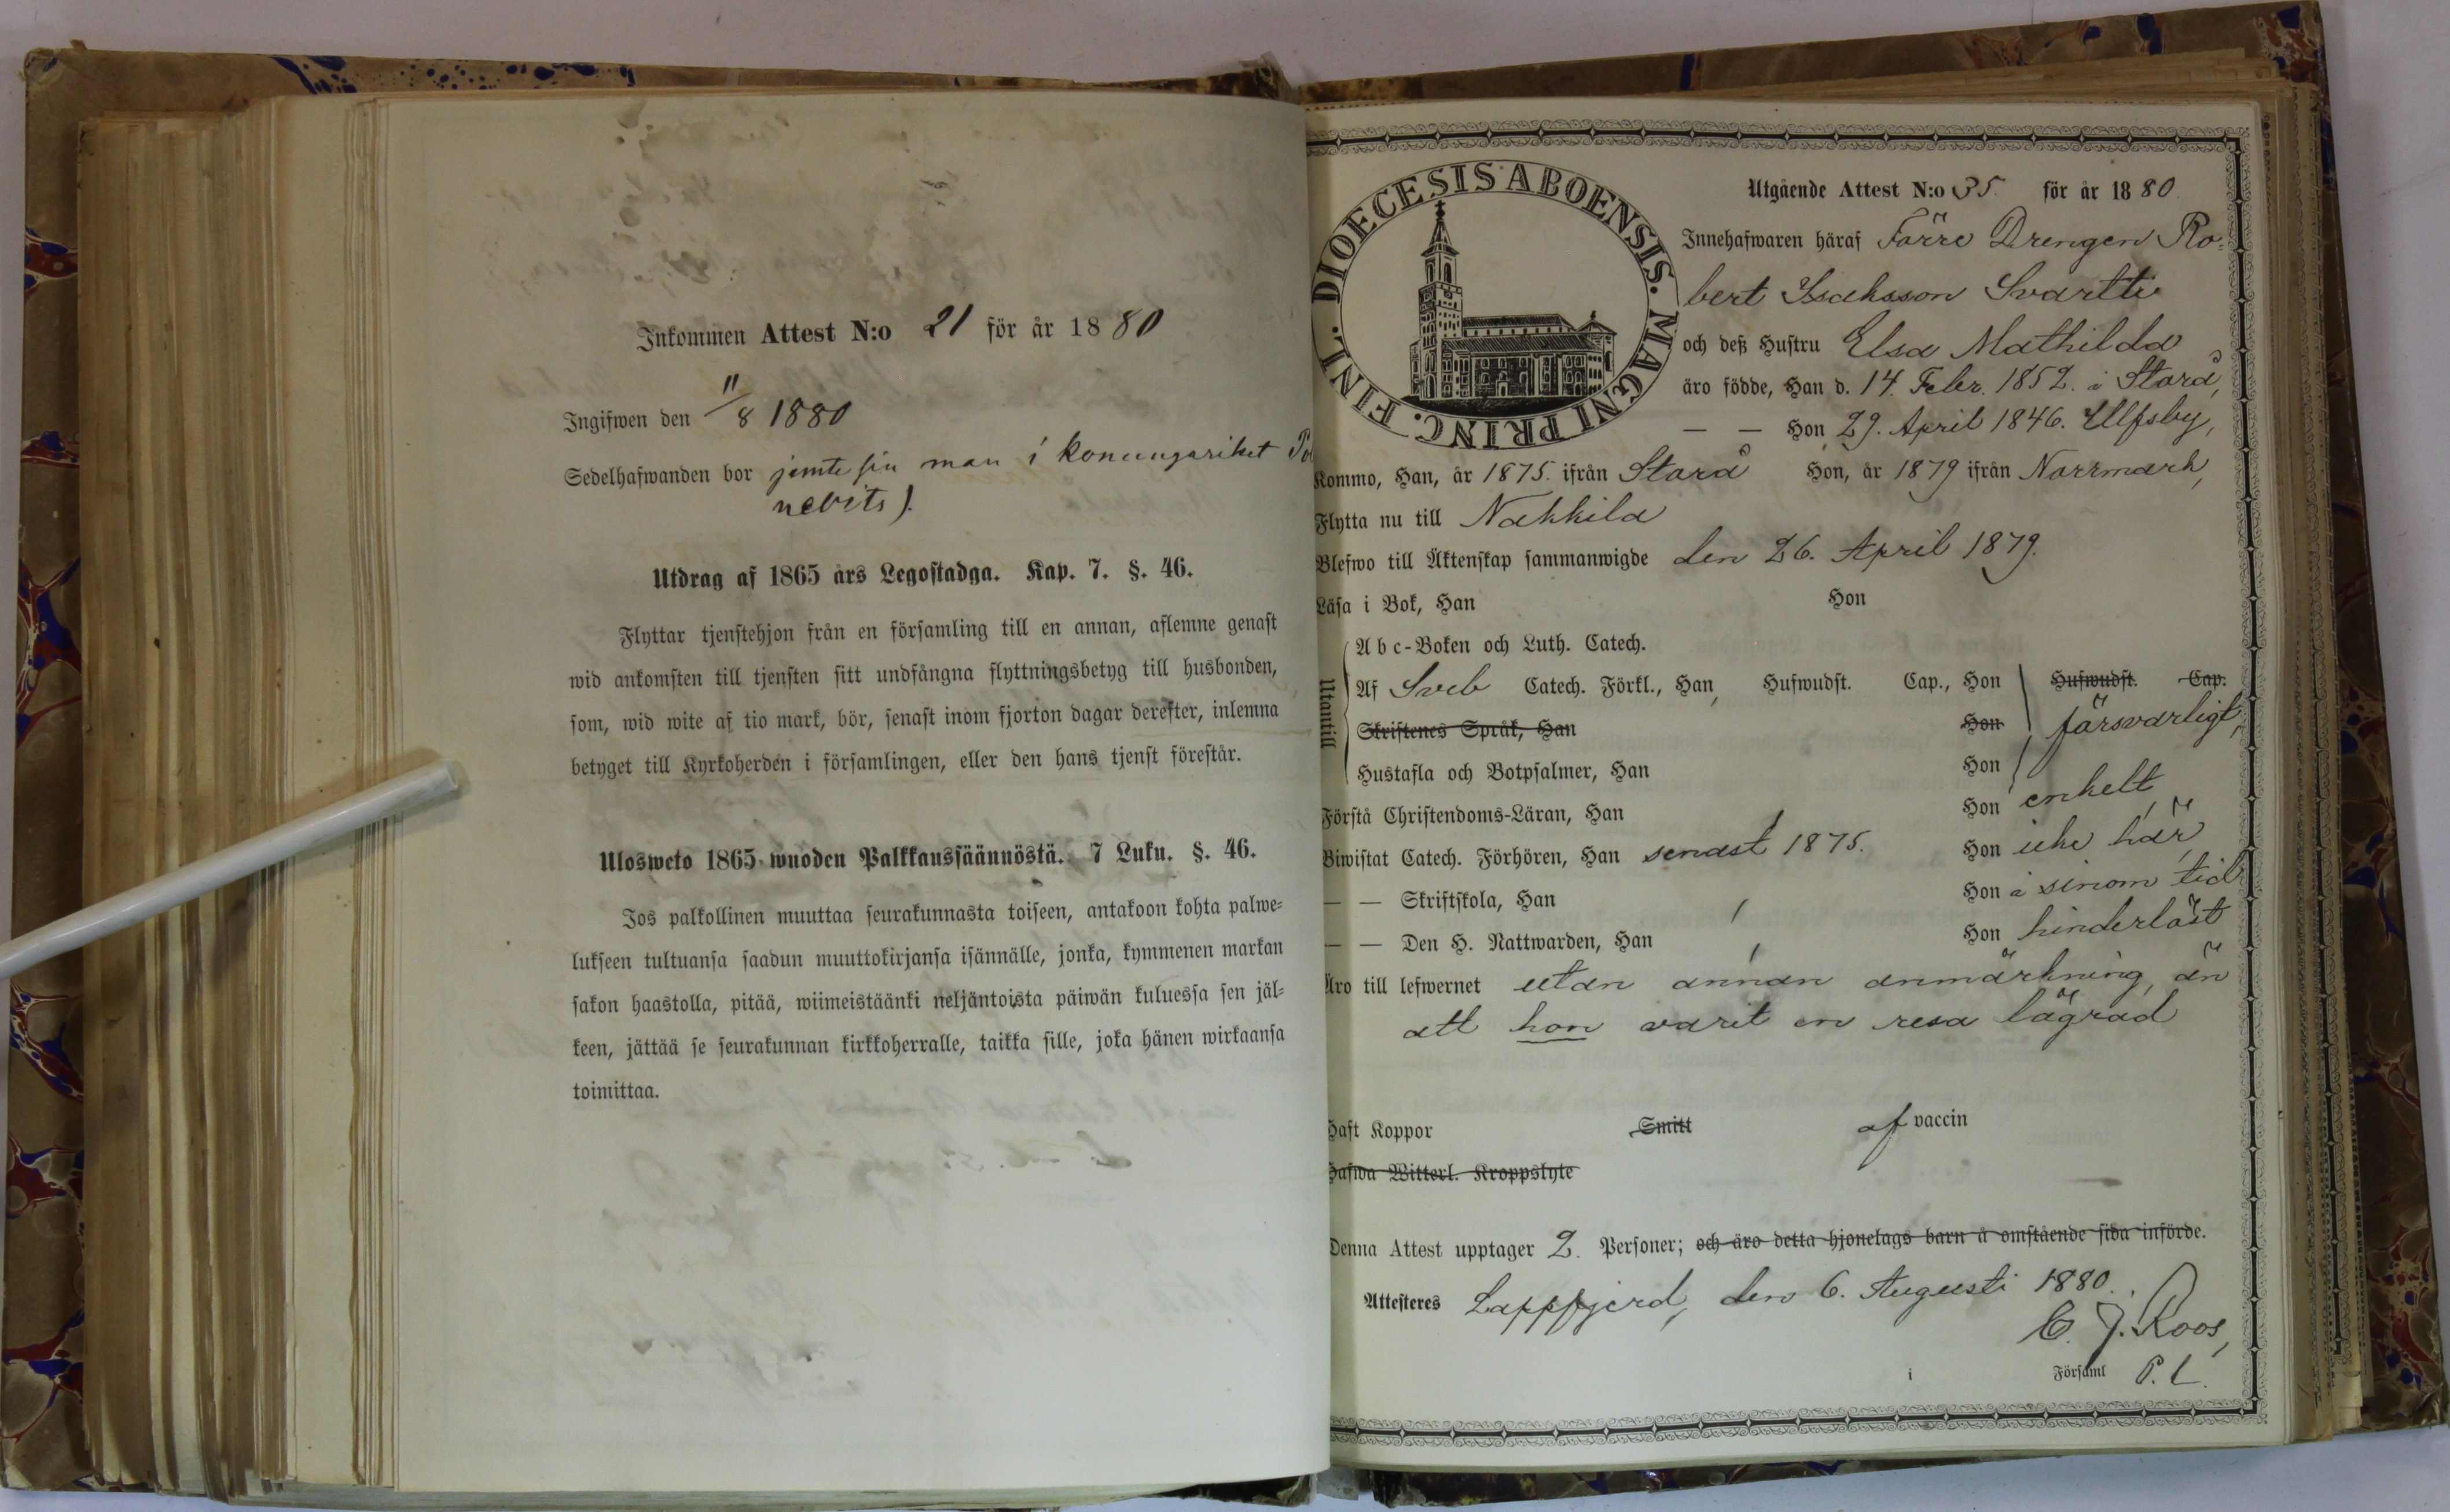 Inkommen Attest N:o 21 för år 1880
Ingifwen den 11/8 1880
Sedelhafwanden bor jemte sin man i konungariket
Utdrag af 1865 års Legostadga. Kap. 7. §. 46.
Flyttar tjenstehjon från en församling till en annan, aflemne genast
wid ankomsten till tjensten sitt undfångna flyttningsbetyg till husbonden,
som, wid wite af tio mark, bör, senast inom fjorton dagar derefter, inlemna
betyget till Kyrkoherden i församlingen, eller den hans tjenst förestår.
Ulosweto 1865 wuoden Palkkaussäännöstä. 7 Luku. §. 46.
Jos palkollinen muuttaa seurakunnasta toiseen, antakoon kohta palwe=
lukseen tultuansa saadun muuttokirjansa isännälle, jonka, kymmenen markan
sakon haastolla, pitää, wiimeistäänki neljäntoista päiwän kuluessa sen jäl=
keen, jättää se seurakunnan kirkkoherralle, taikka sille, joka hänen wirkaansa
toimittaa.
FINL. DIOECESIS ABOENSIS. MAGNI PRINC.
Utgående Attest N:o 35. för år 1880.
Innehafwaren häraf Förre Drengen Ro=
bert Isaksson Svartti
och deß Hustru Elsa Mathilda
äro födde, Han d. 14. Febr. 1852. i Storå,
— — Hon 29. April 1846. Ulfsby,
Kommo, Han, år 1875. ifrån Storå Hon, år 1879 ifrån Norrmark,
Flytta nu till Nakkila
Blefwo till Äktenskap sammanwigde den 26. April 1879.
Läsa i Bok, Han Hon
Utantill
Abc-Boken och Luth. Catech.
Af Sveb Catech. Förkl., Han, Hufwudst. Cap., Hon Hufwudst. Cap.
Skriftenes Språk, Han Hon försvarligt,
Hustafla och Botpsalmer, Han Hon
Förstå Christendoms-Läran, Han Hon enkelt,
Biwistat Catech. Förhören, Han senast 1875. Hon icke här,
— — Skriftskola, Han Hon i sinom tid
— — Den H. Nattwarden, Han Hon hinderlöst
Äro till lefwernet utan annan anmärkning, än
att hon varit en resa lägrad
Haft Koppor Smitt af vaccin
Hafwa Witterl. Kroppslyte
Denna Attest upptager 2. Personer; och äro detta hjonelags barn å omstående sida införde.
Attesteres Lappfjerd, den 6. Augusti 1880.
C. J. Roos,
i Församl P. L.